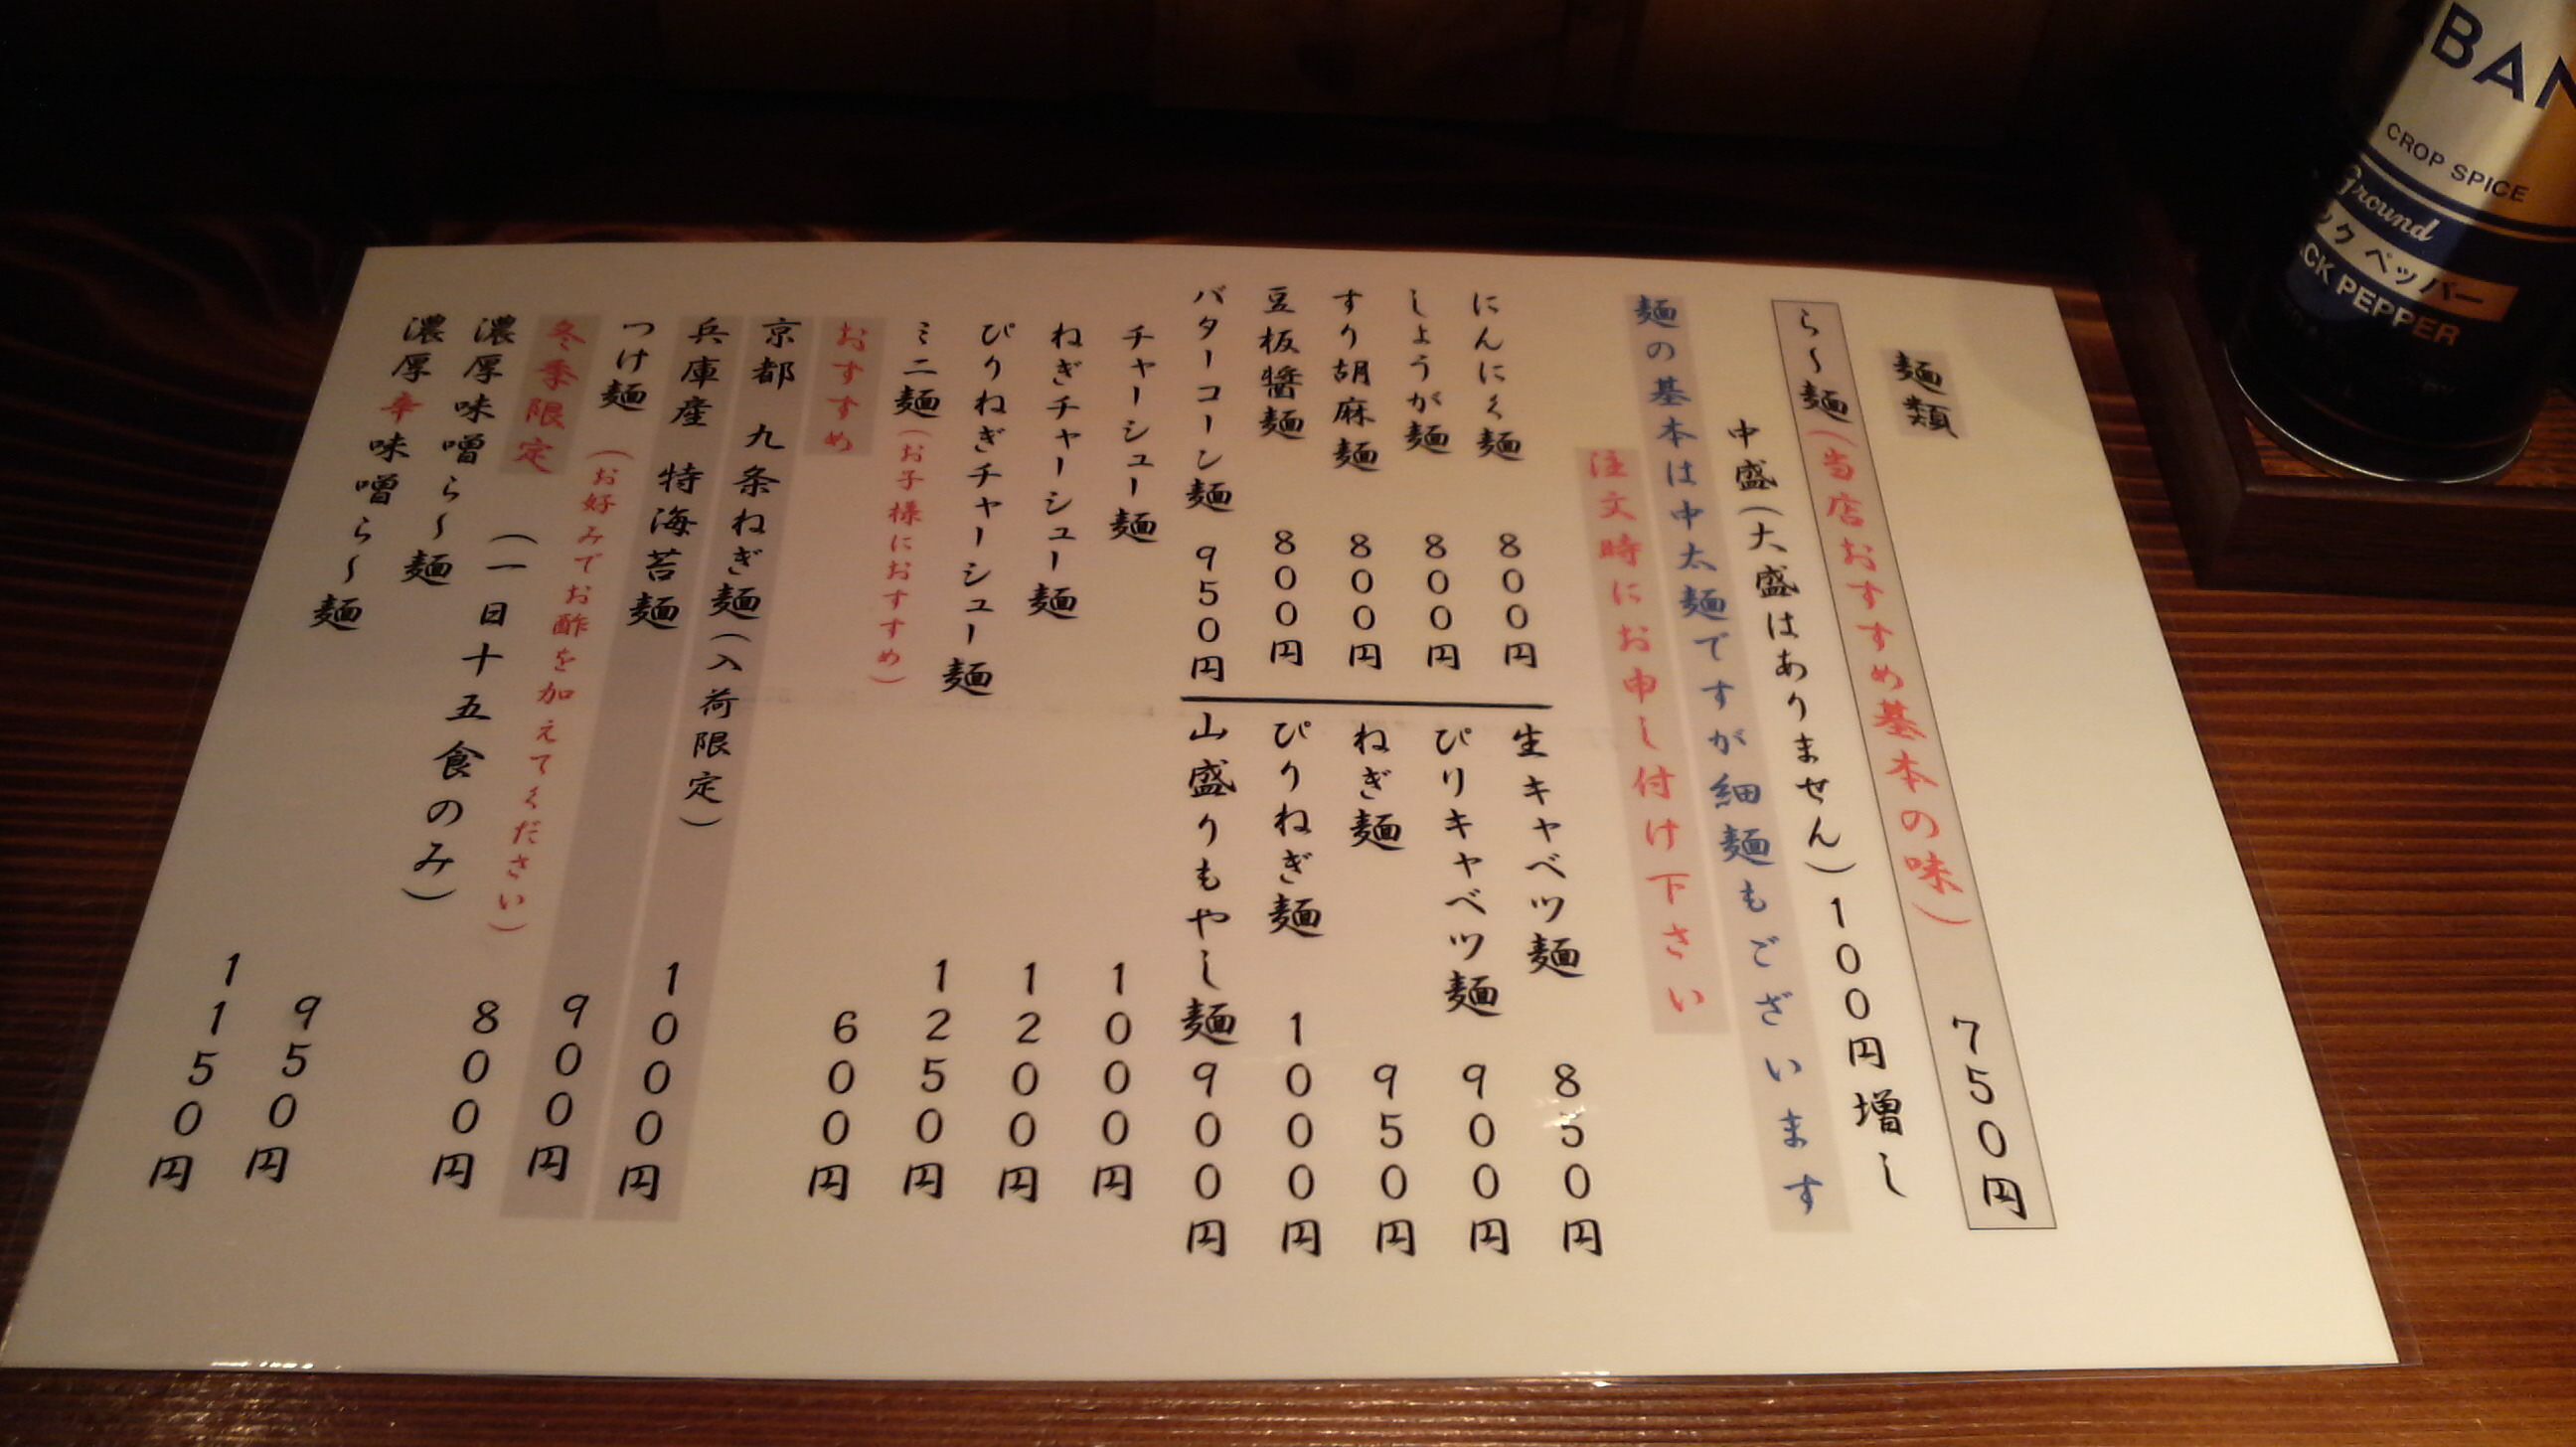 麺類
ら～麺(当店おすすめ基本の味) 750円
中盛(大盛はありません)100円増し
麺の基本は中太麺ですが細麺もございます
注文時にお申し付け下さい
にんにく麺 800円
しょうが麺 800円
すり胡麻麺 800円
豆板醤麺 800円
バターコーン麺 950円
生キャベツ麺 850円
ぴりキャベツ麺 900円
ねぎ麺 950円
ぴりねぎ麺 1000円
山盛りもやし麺 900円
チャーシュー麺 1000円
ねぎチャーシュー麺 1200円
ぴりねぎチャーシュー麺 1250円
ミニ麺(お子様におすすめ) 600円
おすすめ
京都 九条ねぎ麺(入荷限定) 1000円
兵庫産 特海苔麺 900円
つけ麺 (お好みでお酢を加えてください) 800円
冬季限定 (一日十五食のみ)
濃厚味噌ら～麺 950円
濃厚辛味噌ら～麺 1150円
BAN
CROP SPICE
Ground
ックペッパー
CK PEPPER